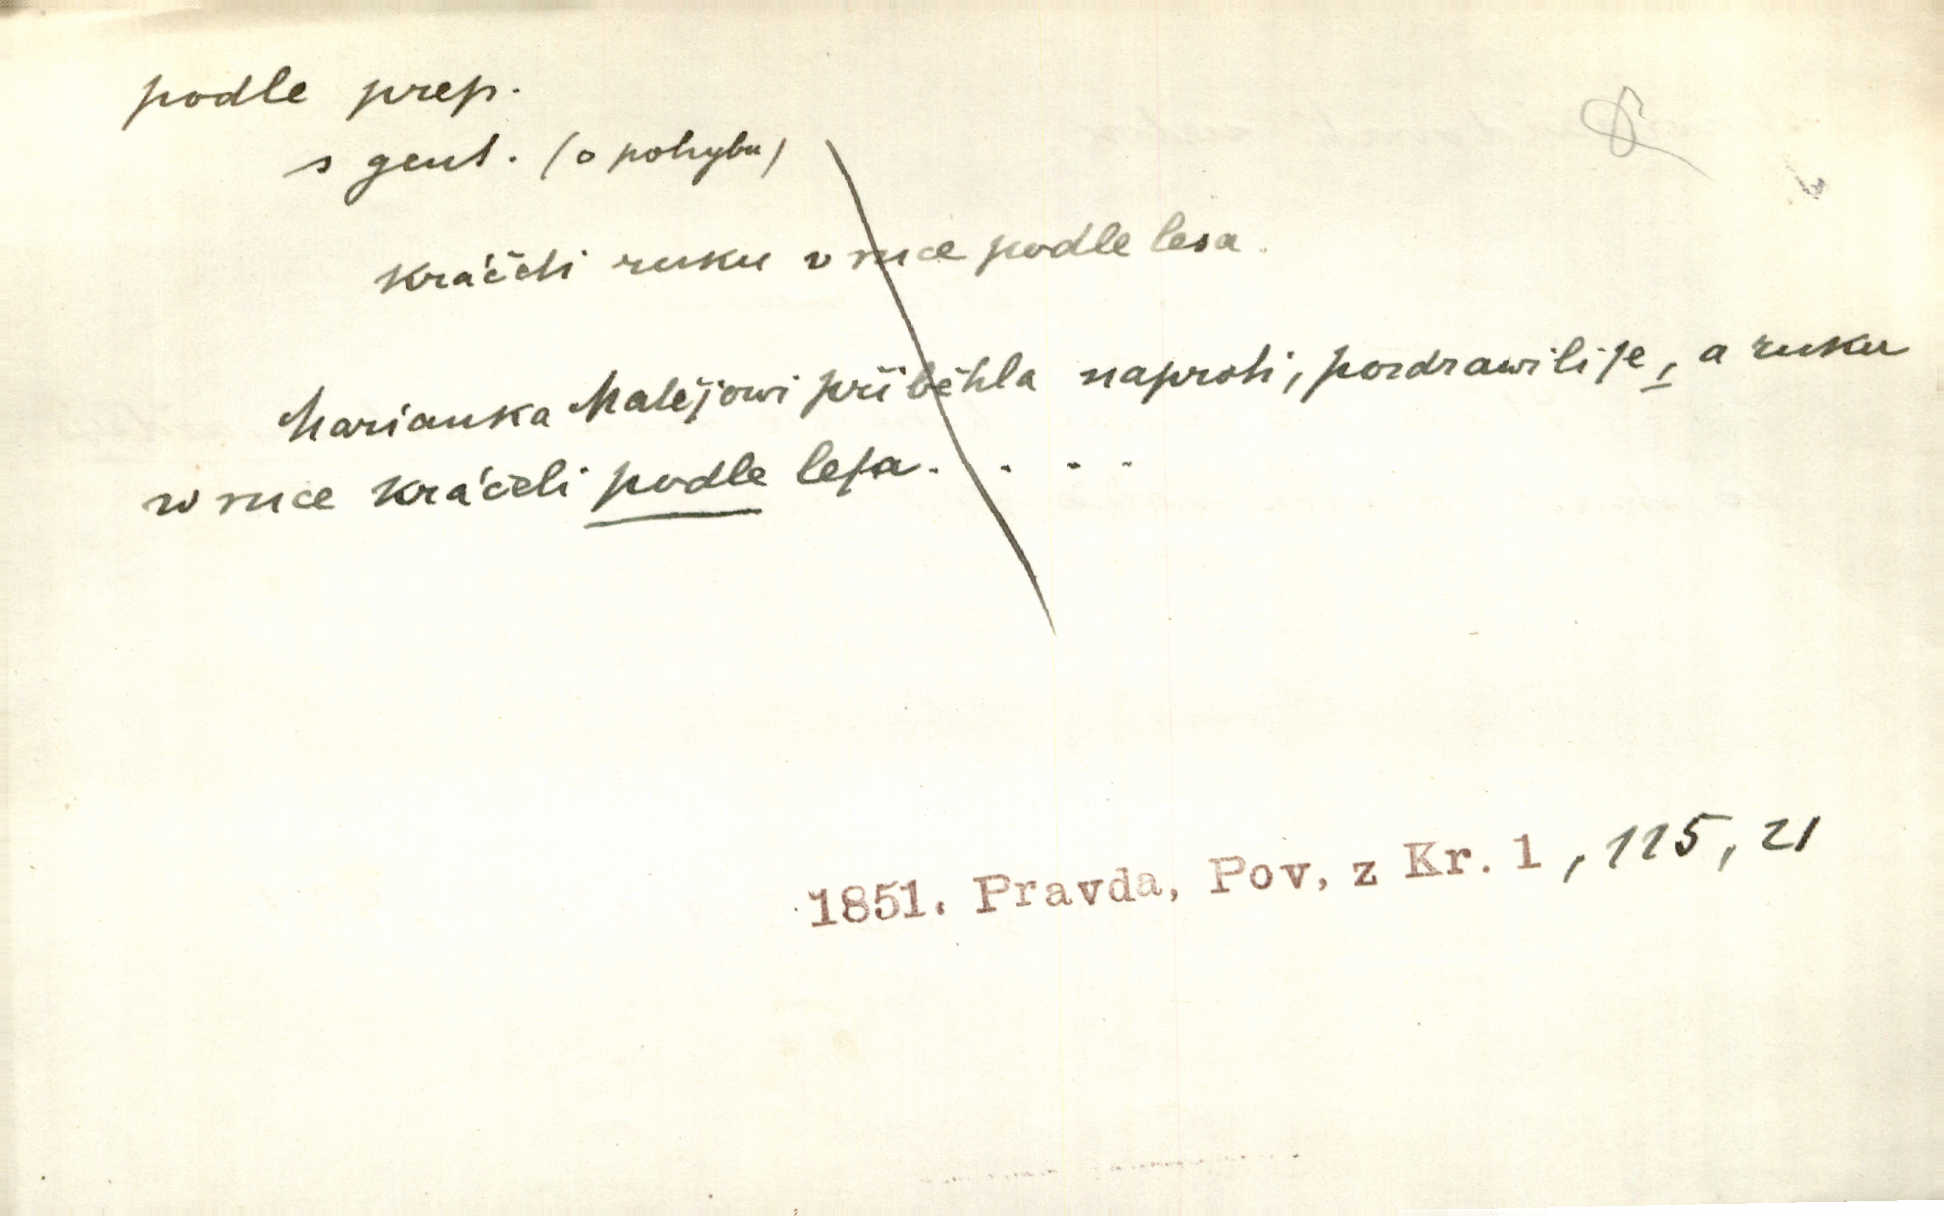 podle prep.
s gent. (o pohybu)
kráčeli ruku v ruce podle lesa.
Marianka Matějowi přiběhla naproti, pozdrawili ſe, a ruku
w ruce kráčeli podle leſa. . . .
1851. Pravda, Pov, z Kr. 1, 115, 21